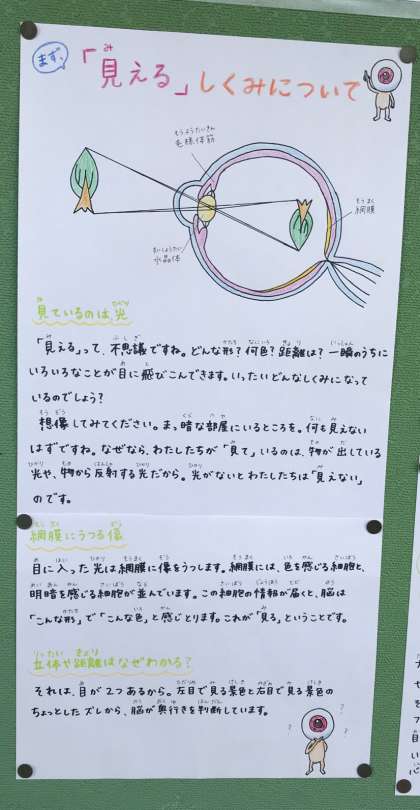 まず、
「見える」しくみについて
もうようたいきん
毛様体筋
もうまく
網膜
すいしょうたい
水晶体
見ているのは光
「見える」って、不思議ですね。どんな形？何色？距離は？一瞬のうちに
いろいろなことが目に飛びこんできます。いったいどんなしくみになって
いるのでしょう？
想像してみてください。まっ暗な部屋にいるところを。何も見えない
はずですね。なぜなら、わたしたちが「見て」いるのは、物が出している
光や、物から反射する光だから。光がないとわたしたちは「見えない」
のです。
網膜にうつる像
目に入った光は網膜に像をうつします。網膜には、色を感じる細胞と、
明暗を感じる細胞が並んでいます。この細胞の情報が届くと、脳は
「こんな形」で「こんな色」と感じとります。これが「見る」ということです。
立体や距離はなぜわかる？
それは、目が2つあるから。左目で見る景色と右目で見る景色の
ちょっとしたズレから、脳が奥行きを判断しています。